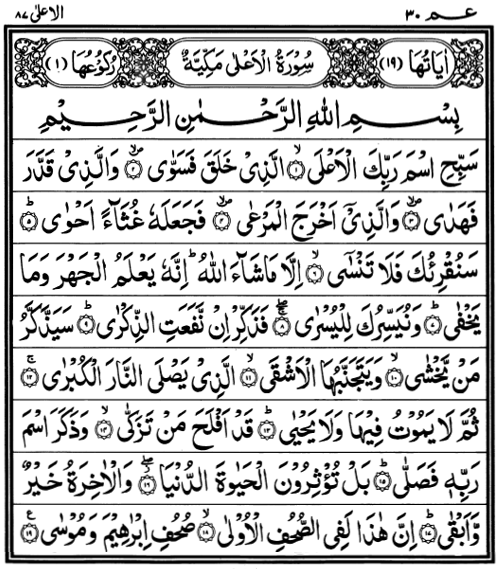 عم ٣٠ الاعلى ٨٧
اٰيَاتُهَا (١٩) سُوْرَةُ الْاَعْلٰى مَكِّيَّةٌ رُكُوْعُهَا (١)
بِسْمِ اللّٰهِ الرَّحْمٰنِ الرَّحِيْمِ
سَبِّحِ اسْمَ رَبِّكَ الْاَعْلَىۙ ﴿١﴾ الَّذِيْ خَلَقَ فَسَوّٰىۙ ﴿٢﴾ وَالَّذِيْ قَدَّرَ
فَهَدٰىۙ ﴿٣﴾ وَالَّذِيْٓ اَخْرَجَ الْمَرْعٰىۙ ﴿٤﴾ فَجَعَلَهٗ غُثَآءً اَحْوٰىؕ ﴿٥﴾
سَنُقْرِئُكَ فَلَا تَنْسٰٓىۙ ﴿٦﴾ اِلَّا مَا شَآءَ اللّٰهُؕ اِنَّهٗ يَعْلَمُ الْجَهْرَ وَمَا
يَخْفٰىؕ ﴿٧﴾ وَنُيَسِّرُكَ لِلْيُسْرٰىۚۖ ﴿٨﴾ فَذَكِّرْ اِنْ نَّفَعَتِ الذِّكْرٰىؕ ﴿٩﴾ سَيَذَّكَّرُ
مَنْ يَّخْشٰىۙ ﴿١٠﴾ وَيَتَجَنَّبُهَا الْاَشْقَىۙ ﴿١١﴾ الَّذِيْ يَصْلَى النَّارَ الْكُبْرٰىۚ ﴿١٢﴾
ثُمَّ لَا يَمُوْتُ فِيْهَا وَلَا يَحْيٰىؕ ﴿١٣﴾ قَدْ اَفْلَحَ مَنْ تَزَكّٰىۙ ﴿١٤﴾ وَذَكَرَ اسْمَ
رَبِّهٖ فَصَلّٰىؕ ﴿١٥﴾ بَلْ تُؤْثِرُوْنَ الْحَيٰوةَ الدُّنْيَاۖ ﴿١٦﴾ وَالْاٰخِرَةُ خَيْرٌ
وَّاَبْقٰىؕ ﴿١٧﴾ اِنَّ هٰذَا لَفِي الصُّحُفِ الْاُوْلٰىۙ ﴿١٨﴾ صُحُفِ اِبْرٰهِيْمَ وَمُوْسٰى ﴿١٩﴾ ع